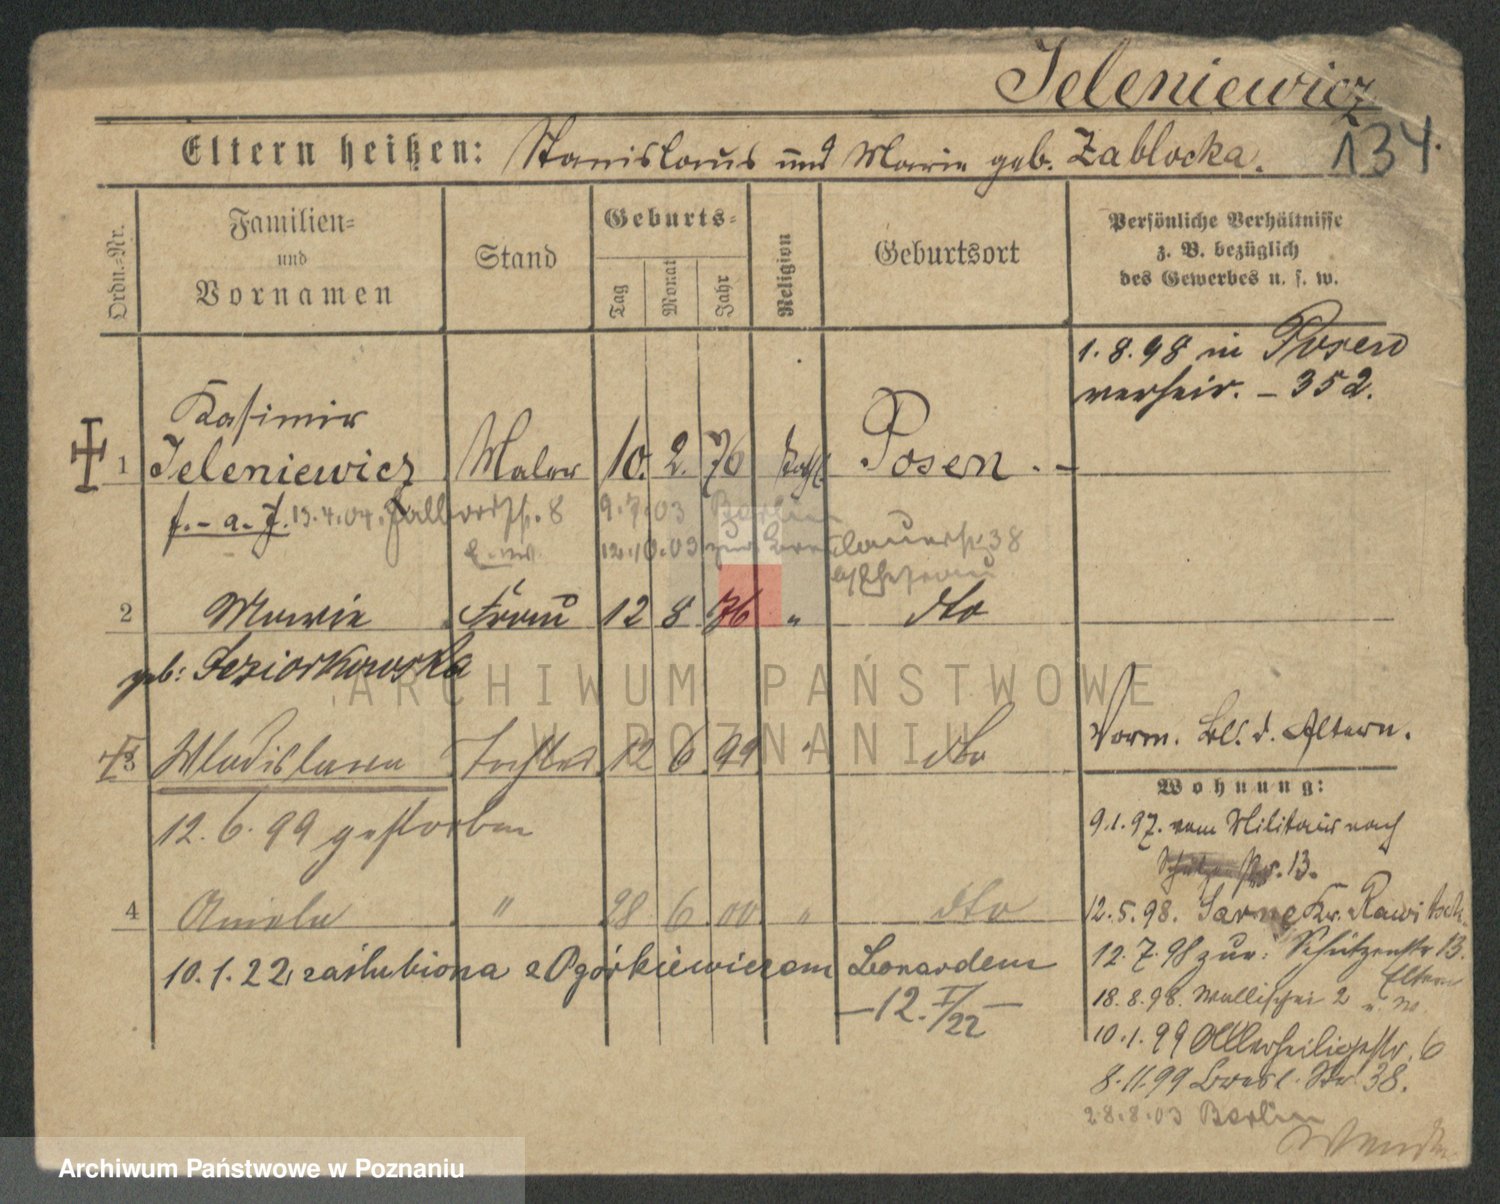 Jeleniewicz
134.
Eltern heißen: Stanislaus und Marie geb. Zablocka.
Ordn.-Nr.
Familien-
und
Vornamen
Stand
Geburts-
Tag
Monat
Jahr
Religion
Geburtsort
Persönliche Verhältnisse
z. B. bezüglich
des Gewerbes u. s. w.
1.8.98 in Posen
verheir. - 352.
Kasimir
1 Jeleniewicz Maler 10. 2. 76 kath Posen
f. - a. J. 13.4.04. Halbdorfstr. 8 9.7.03 Berlin
12.10.03 zur Breslauerstr 38
Ehefrau
2 Marie Frau 12 8 76 " dto
geb: Jeziorkowska
3 Wladislawa Tochter 12 6 99 " dto
12.6.99 gestorben
4 Aniela " 28 6 00 " dto
10.1.22 zaślubiona z Ogórkiewiczem Leonardem
- 12. I/22 -
Vorm. Bl. d. Eltern.
Wohnung:
9.1.97. vom Militair nach
Schützenstr. 13.
12.5.98. Sarne Kr. Rawitsch
12.7.98 zur: Schützenstr 13.
Eltern
18.8.98. Wallischei 2
10.1.99 Allerheiligestr. 6
8.11.99 Bresl. Str 38.
28.8.03 Berlin
ARCHIWUM PAŃSTWOWE
W POZNANIU
Archiwum Państwowe w Poznaniu